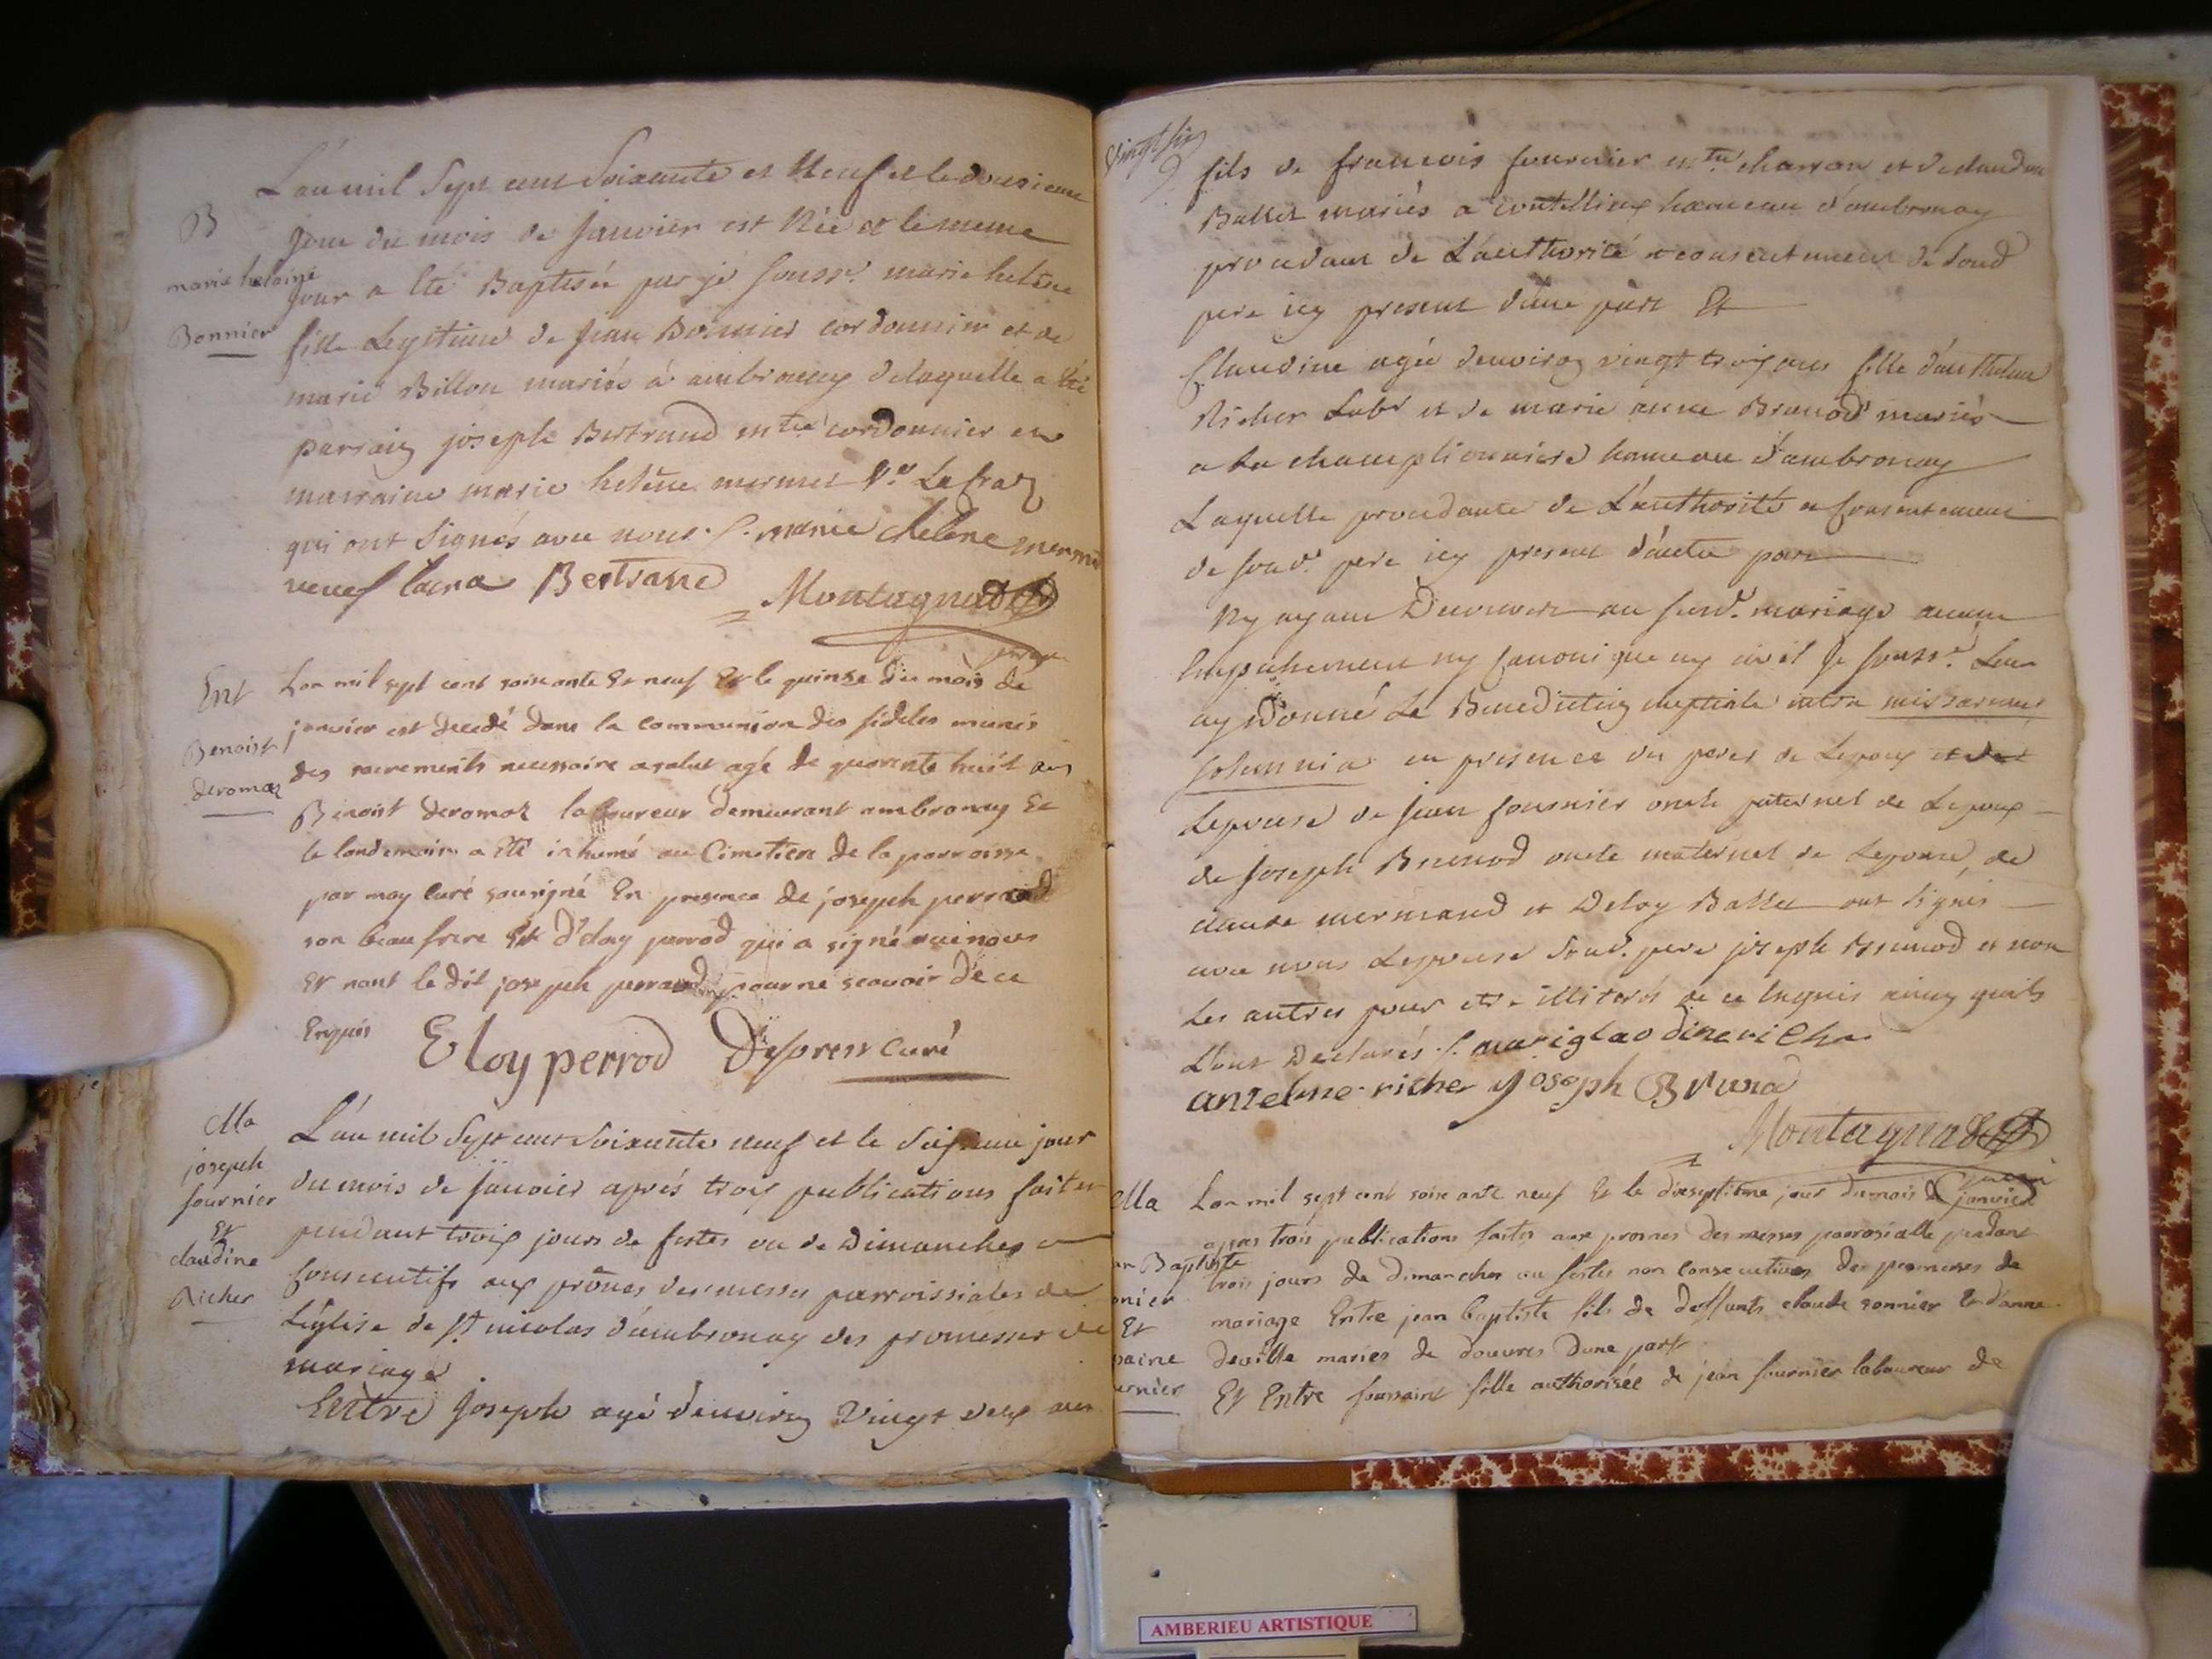 B
marie helaine
Bonnier
L'an mil Sept cent Soixante et Neuf et le dousieme
jour du mois de Janvier est Née et le meme
jour a été Baptisée par je souss.é marie helene
fille Legitime de Jean Bonnier cordonnier et de
marie Billon mariés à ambronay delaquelle a été
parrain joseph Bertrand m.tre cordonnier et
marraine marie helene mermet V.e
qui ont Signés avec nous. marie helene mermet
Bertrand Montagnat
Ent
Benoist
deromaz
Lan mil sept cent soixante Et neuf Et le quinze du mois de
janvier est decedé dans la communion des fideles munis
des sacrements necessaire a salut agé de quarente huit ans
Benoist deromaz laboureur demeurant ambronay Et
le landemain a été inhumé au Cimetiere de la parroisse
par moy curé sousigné En presence de joseph perraud
son beau frere Et d'eloy perrod qui a signé avec nous
Et nont le dit joseph perraud pour ne scavoir de ce
Enquis Eloy perrod Despress curé
Ma
joseph
fournier
Et
claudine
Richer
L'an mil Sept cent Soixante neuf et le jour
du mois de Janvier aprés trois publications faites
pendant trois jours de festes ou de Dimanches
Consecutifs aux prônes des messes parroissiales de
L'église de St nicolas d'ambronay des promesses de
mariage
Entre Joseph agé d'environ Vingt deux ans
Vingt six
fils de francois fournier m.tre charron et de claudine
Ballet mariés a hameau d'ambronay
procedant de L'authorité et consentement de Soud
pere icy present d'une part Et
Claudine agée d'environ vingt trois ans fille d'anthelme
Richer Lab.r et de marie anne Brunod mariés
a La championniere hameau d'ambronay
Laquelle procedante de L'authorité et Consentement
de soud.t pere icy present d'autre part
Ny ayant Decouvert au susd.t mariage aucun
Empechement ny Canonique ny civil Je souss.é Leur
ay Donné La Benediction nuptiale intra missarum
solemnia en presence des peres de Lepoux et de
Lepouse de Jean fournier oncle paternel de Lepoux
de Joseph Brunod oncle maternel de Lepouse, de
claude mermand et Deloy Ballet ont signés
avec nous Lepouse Soud. pere joseph Brunod et non
Les autres pour etre illiterés de ce Enquis ainsy quils
L'ont Declarés
anzelme richer Joseph Brunod
Montagnat
Ma
Baptiste
Et
Lan mil sept cent soixante neuf Et le dixseptième jour du mois de janvier
apres trois publications faites aux prones des messes parrosialle pendant
trois jours de dimanches ou festes non consecutives des promesses de
mariage Entre jean baptiste fils de deffunts claude sonnier Et d'anne
deville mariés de douvres dune part
Et Entre fille authorisée de jean fournier laboureur de
AMBERIEU ARTISTIQUE